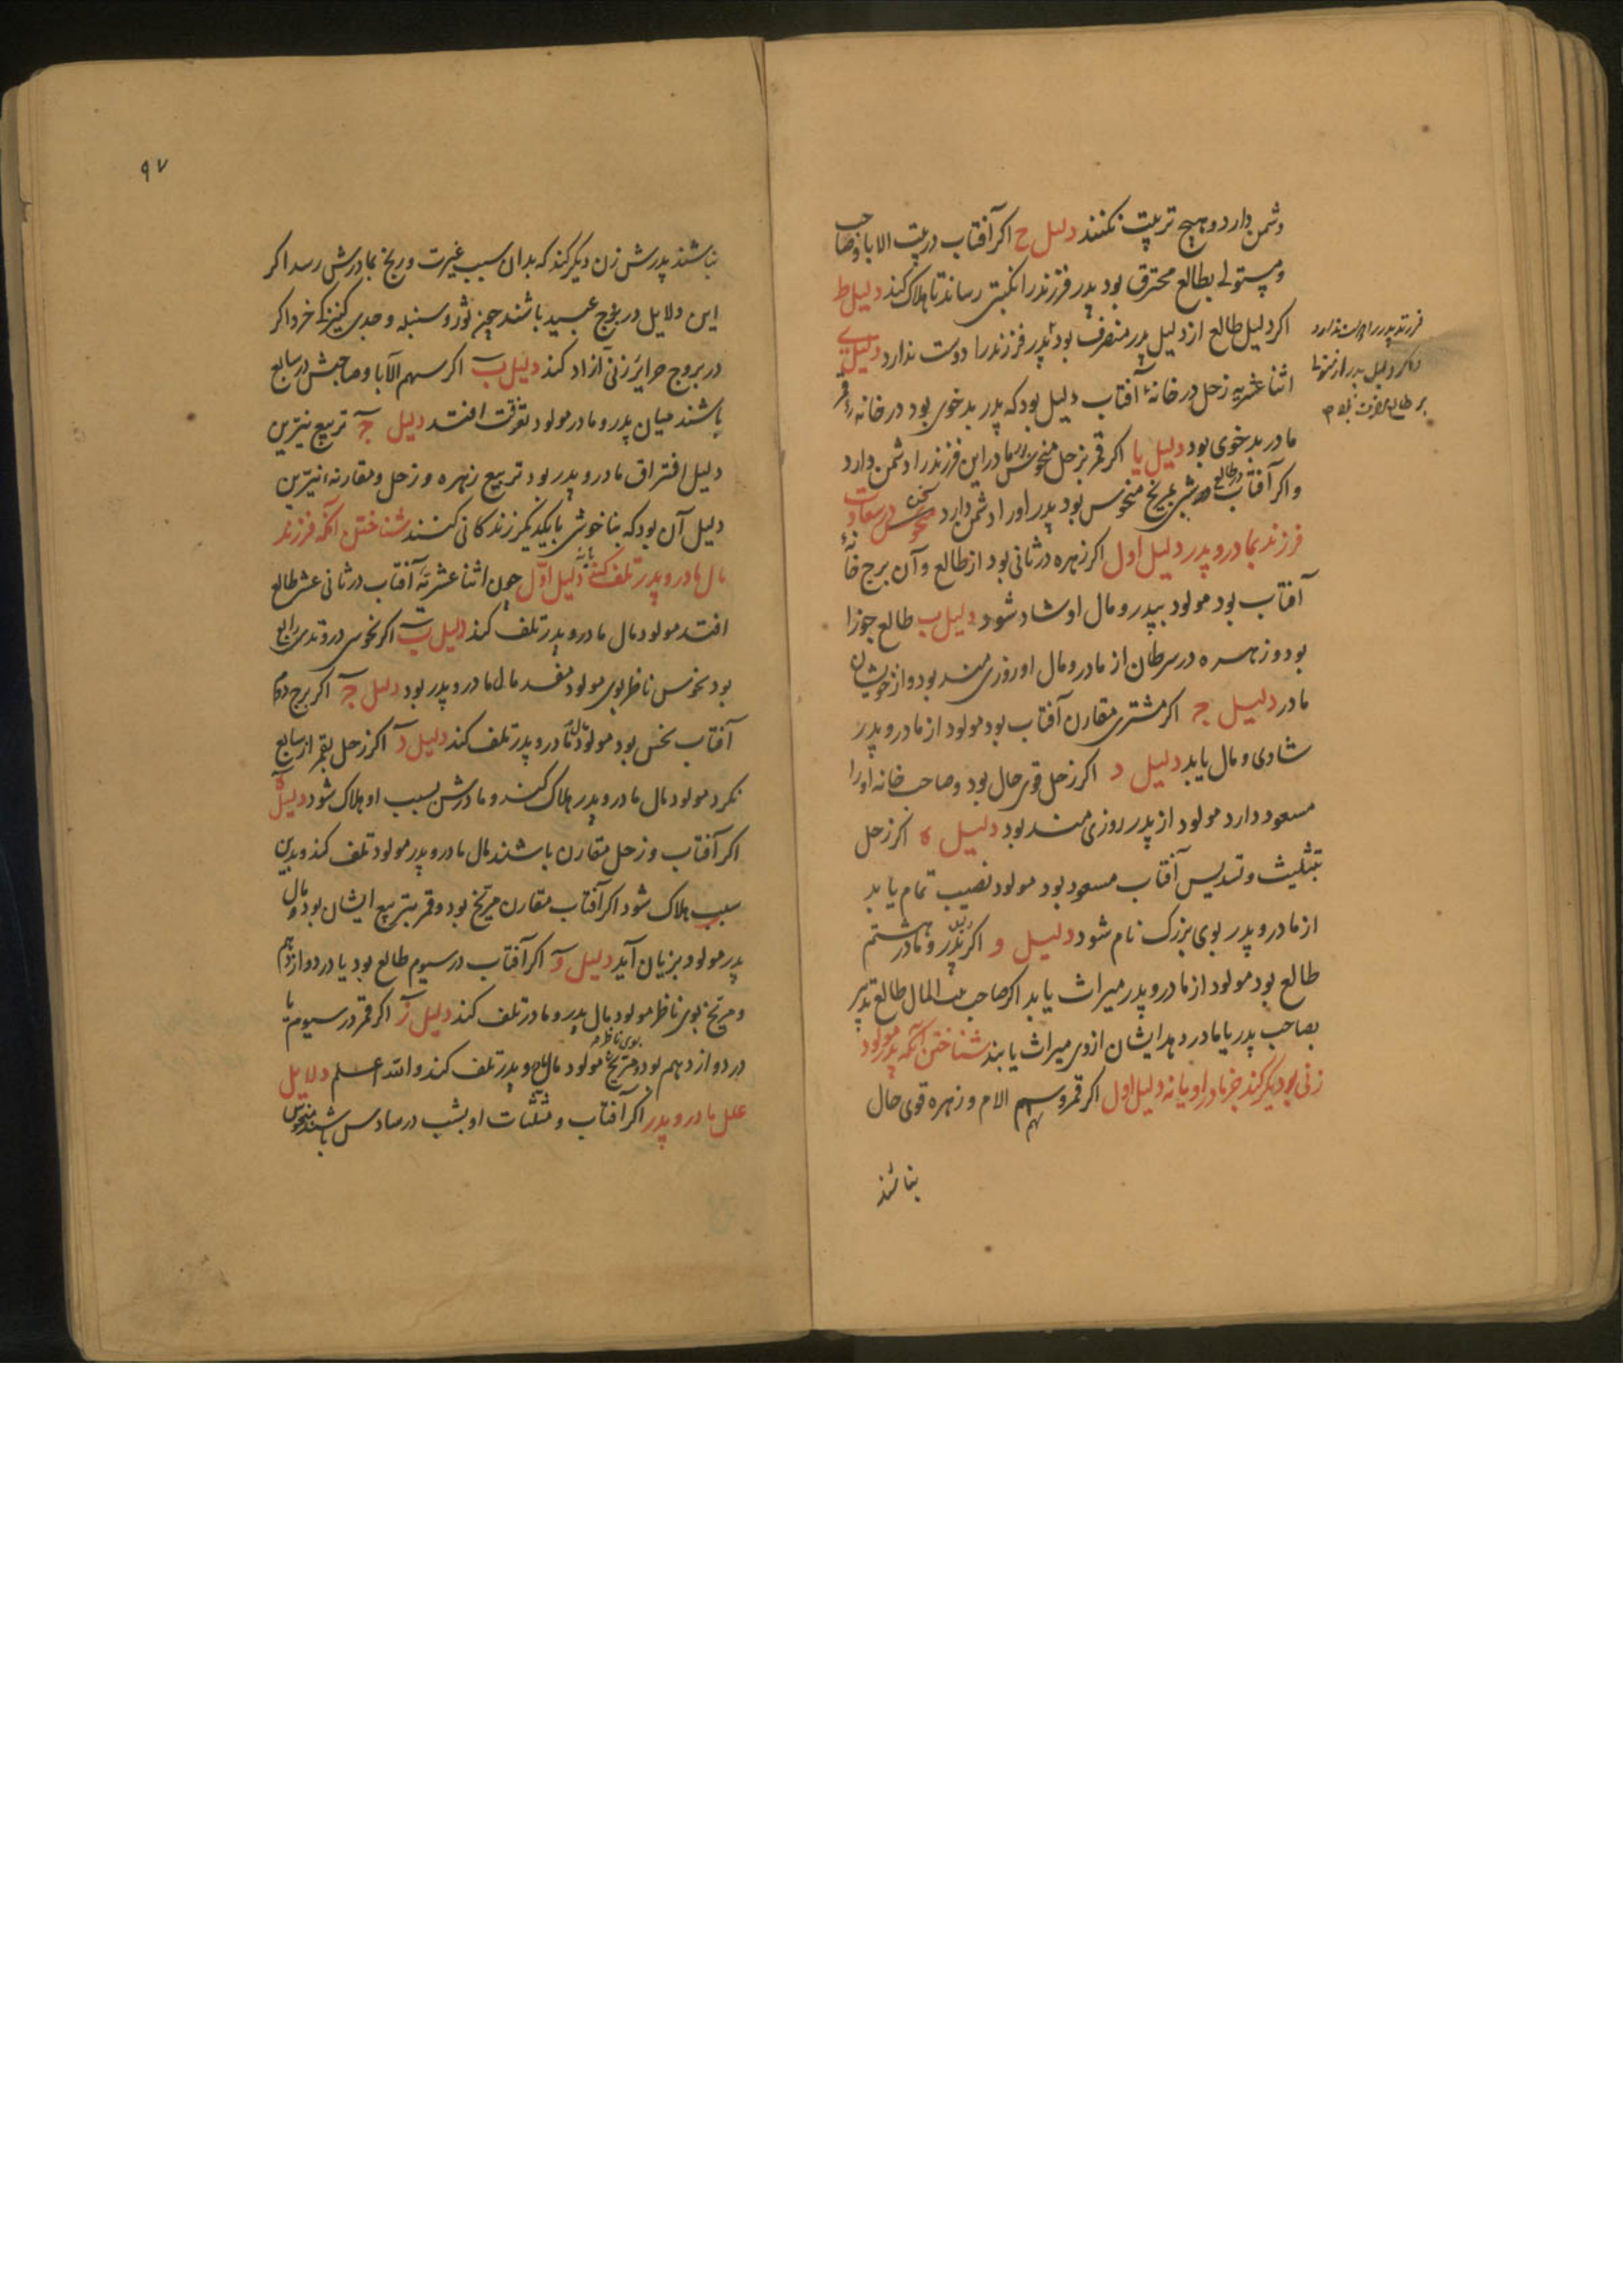 دشمن دارد و هیچ تربیت نکنند دلیل ح اکر آفتاب در بیت الابا و صاحب
و مستولی بطالع محترق بود پدر فرزند را نکبتی رساند تا هلاک کند دلیل ط
اکر دلیل طالع از دلیل پدر منصرف بود پدر فرزند را دوست ندارد دلیل ی
اثنا عشریه زحل در خانهٔ آفتاب دلیل بود که پدر بدخوی بود در خانهٔ قمر
مادر بدخوی بود دلیل یا اکر قمر بزحل منحوس بود مادر این فرزند را دشمن دارد
و اکر آفتاب در طالع شبی بمریخ منحوس بود پدر او را دشمن دارد در سعادت
فرزند بمادر و پدر دلیل اول اکر زهره در ثانی بود از طالع و آن برج خانهٔ
آفتاب بود مولود بپدر و مال او شاد شود دلیل ب طالع جوزا
بود و زهره در سرطان از مادر و مال او روزی مند بود و از خویشان
مادر دلیل ج اکر مشتری مقارن آفتاب بود مولود از مادر و پدر
شادی و مال یابد دلیل د اکر زحل قوی حال بود و صاحب خانه او را
مسعود دارد مولود از پدر روزی مند بود دلیل ه اکر زحل
بتثلیث و تسدیس آفتاب مسعود بود مولود نصیب تمام یابد
از مادر و پدر بوی بزرک نام شود دلیل و اکر دلیل پدر و مادر در هشتم
طالع بود مولود از مادر و پدر میراث یابد اکر صاحب بیت المال طالع تدبیر
بصاحب پدر یا مادر دهد ایشان از وی میراث یابند شناختن آنکه پدر مولود
زنی دیکر کند جز مادر او یا نه دلیل اول اکر قمر و سهم الام و زهره قوی حال
سهم
نباشند
فرزند پدر را دوست ندارد
و اکر دلیل پدر از مستولی
بر طالع منصرف بود
۹۷
نباشند پدرش زن دیکر کند که بدان سبب غیرت و رنج بمادرش رسد اکر
این دلایل در بروج عبید باشند چون ثور و سنبله و جدی کنیزکی خرد اکر
در بروج حرایر زنی آزاد کند دلیل ب اکر سهم الآبا و صاحبش در سابع
باشند میان پدر و مادر مولود تفرقت افتد دلیل ج تربیع نیرین
دلیل افتراق مادر و پدر بود تربیع زهره و زحل و مقارنهٔ نیرین
دلیل آن بود که بناخوشی با یکدیکر زندکانی کنند شناختن آنکه فرزند
مال مادر و پدر تلف کند یا نه دلیل اول چون اثنا عشریهٔ آفتاب در ثانی عشر طالع
افتد مولود مال مادر و پدر تلف کند دلیل ب اکر نحوس در وتدی رابع
بود نحوس ناظر بوی مولود مفسد مال مادر و پدر بود دلیل ج اکر برج دوم
آفتاب نحس بود مولود مال مادر و پدر تلف کند دلیل د اکر زحل بقمر از سابع
نکرد مولود مال مادر و پدر هلاک کند و مادرش بسبب او هلاک شود دلیل ه
اکر آفتاب و زحل مقارن باشند مال مادر و پدر مولود تلف کند و بدین
سبب هلاک شود اکر آفتاب مقارن مریخ بود و قمر بتربیع ایشان بود مال
پدر مولود بزیان آید دلیل و اکر آفتاب در سیوم طالع بود یا در دوازدهم
و مریخ بوی ناظر مولود مال پدر و مادر تلف کند دلیل ز اکر قمر در سیوم یا
در دوازدهم بود و مریخ بوی ناظر مولود مال مادر و پدر تلف کند و الله اعلم دلایل
علل مادر و پدر اکر آفتاب و مثلثات او بشب در سادس باشند منحوس